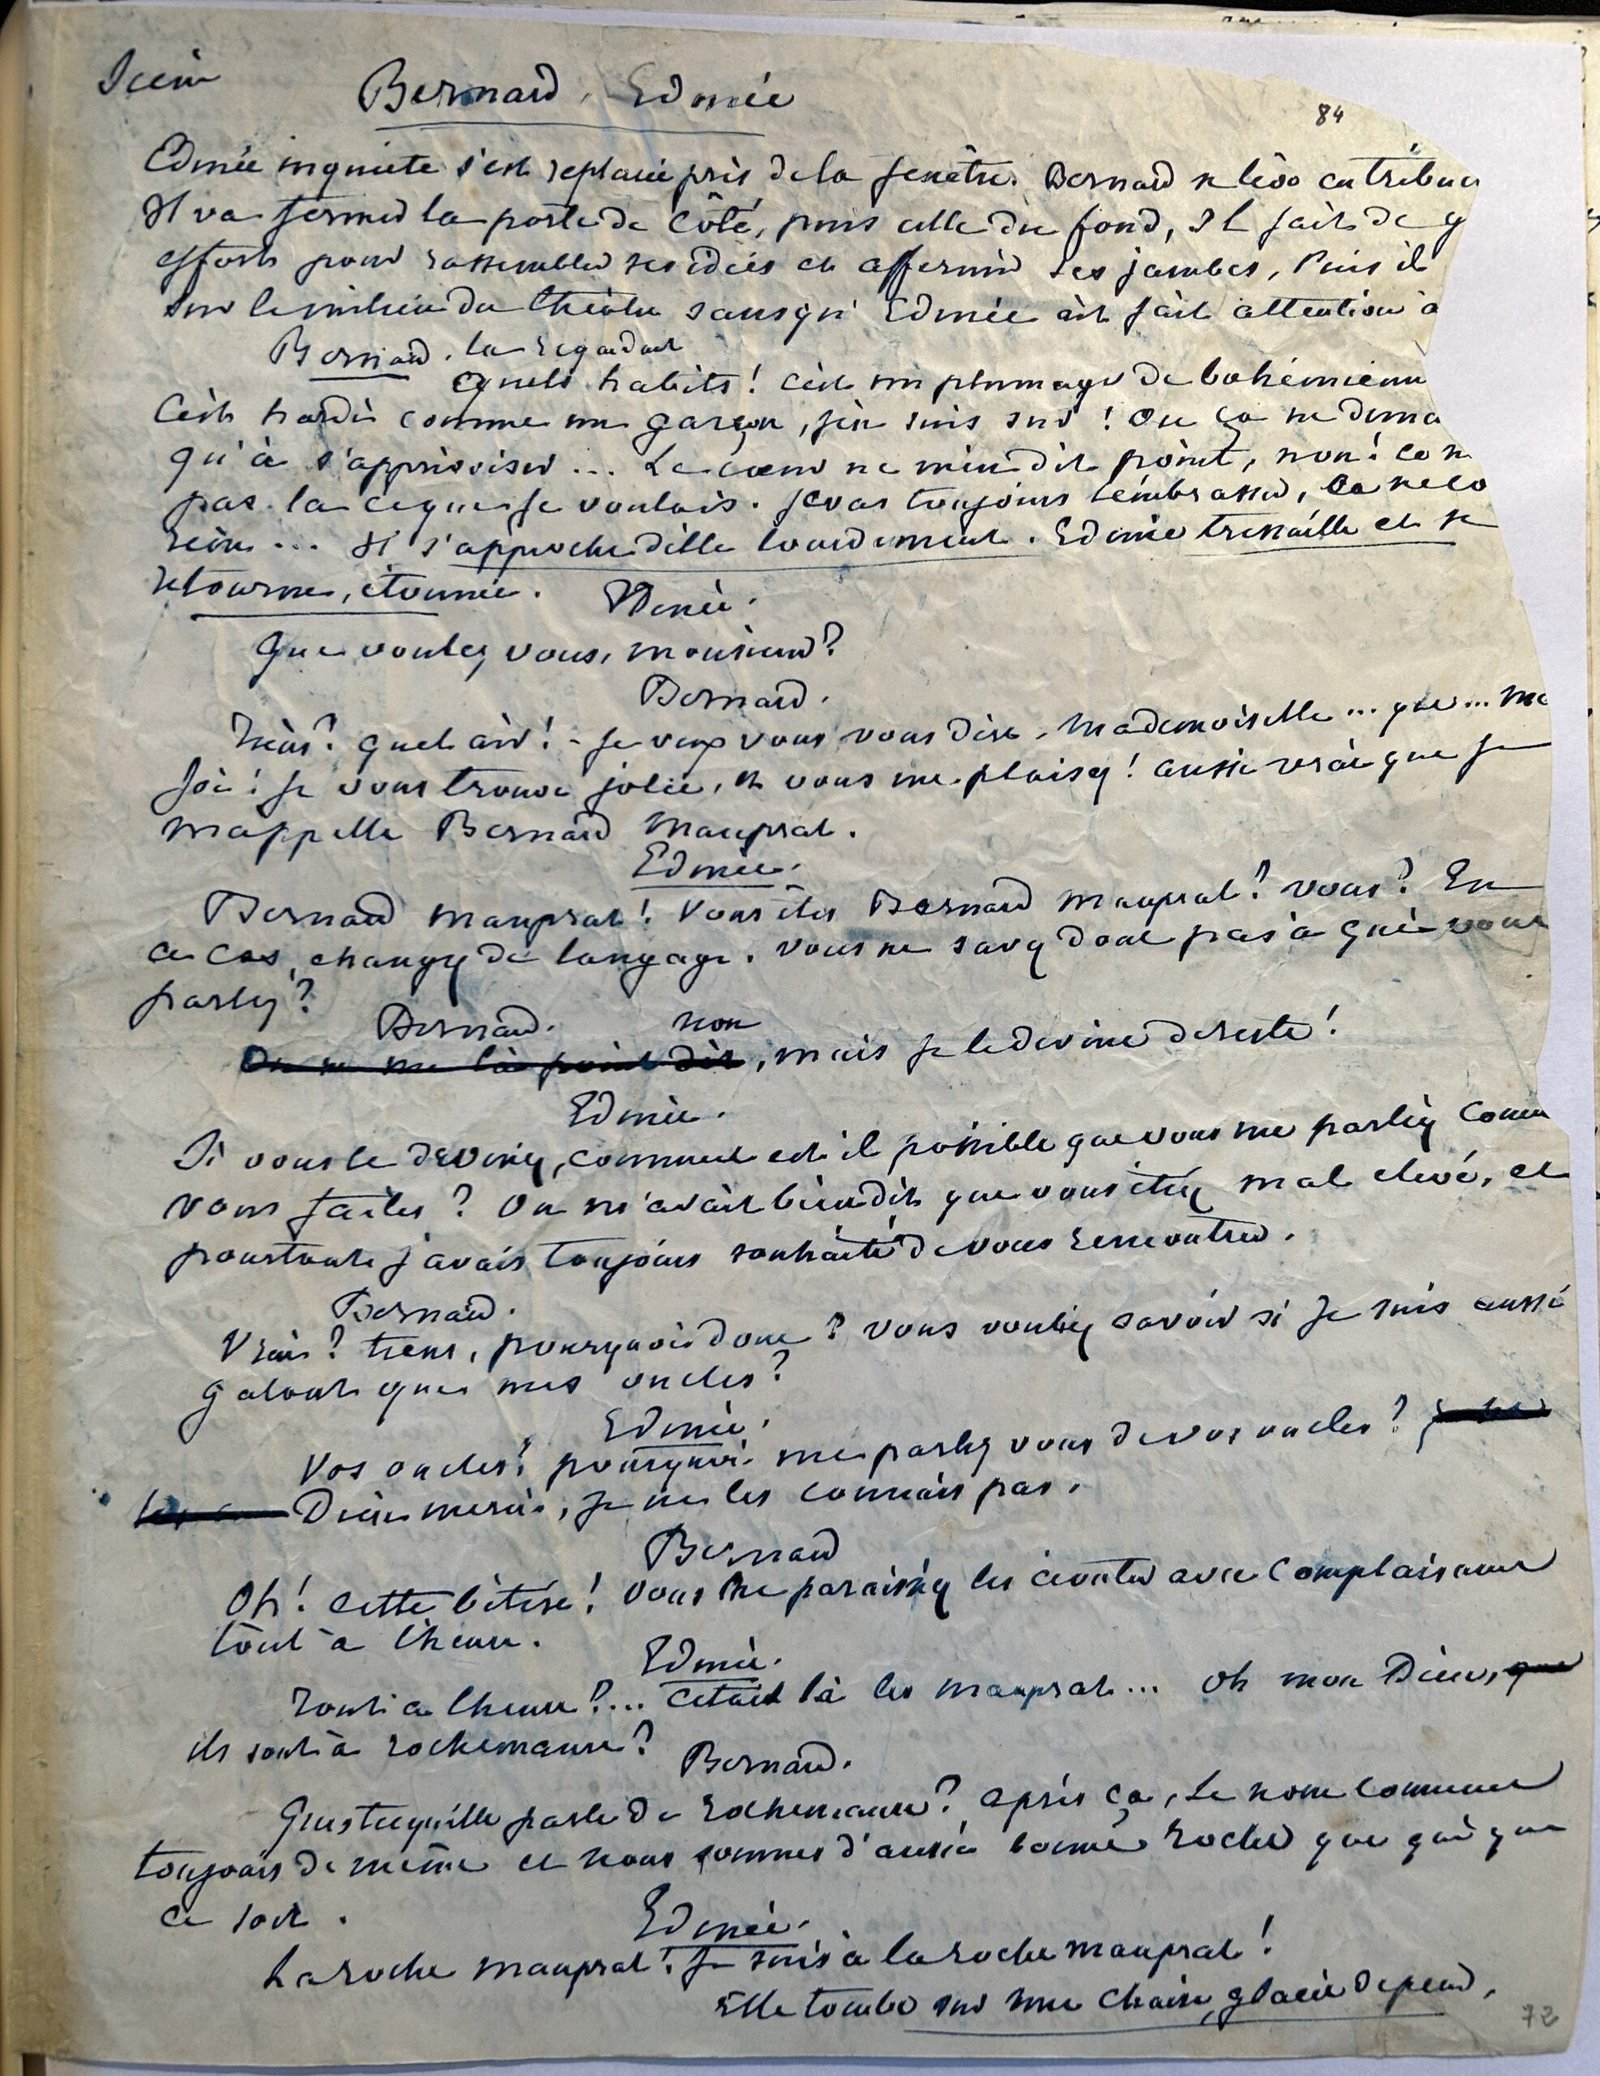 Scène Bernard, Edmée
84
Edmée inquiete s'est replacée près de la fenêtre. Bernard se lève en trébuc
Il va fermer la porte de côté, puis celle du fond, Il fait de g
efforts pour rassembler ses idées et affermir ses jambes, Puis il
sur le milieu du théâtre sans qu'Edmée ait fait attention à
Bernard. la regardant
Quels habits! C'est un plumage de bohémienn
C'est hardi comme un garçon, j'en suis sur! Ou ça ne dema
qu'à s'apprivoiser... Le cœur ne m'en dit point, non! ce n
pas là ce que je voulais. Je vas toujours l'embrasser, ça ne co
rien... Il s'approche d'elle lourdement. Edmée tressaille et se
retourne, étonnée.
Edmée.
Que voulez vous, monsieur?
Bernard.
Tiens! quel air! - Je veux vous vous dire, mademoiselle... que... ma
foi! Je vous trouve jolie, et vous me plaisez! aussi vrai que je
m'appelle Bernard Mauprat.
Edmée.
Bernard Mauprat! Vous êtes Bernard Mauprat? vous? En
ce cas, changez de langage. Vous ne savez donc pas à qui vous
parlez?
Bernard. non
On ne me l'a point dit, mais je le devine de reste!
Edmée.
Si vous le devinez, comment est il possible que vous me parliez comm
vous faites? On m'avait bien dit que vous étiez mal elevé, et
pourtant j'avais toujours souhaité de vous rencontrer.
Bernard.
Vrai? tiens, pourquoi donc? vous vouliez savoir si je suis aussi
galant que mes oncles?
Edmée.
Vos oncles! pourquoi me parlez vous de vos oncles?
Dieu merci, je ne les connais pas.
Bernard
Oh! cette bêtise! vous me paraissiez les écouter avec complaisance
tout à l'heure.
Edmée.
Tout à l'heure?... C'était là les Mauprat... Oh mon Dieu, que
ils sont à Rochemaure?
Bernard.
Qu'est ce qu'elle parle de Rochemaure? après ça, le nom commence
toujours de même et nous sommes d'aussi bonne roche que qui que
ce soit.
Edmée.
La roche Mauprat! Je suis à la roche Mauprat!
Elle tombe sur une chaise, glacée de peur.
72